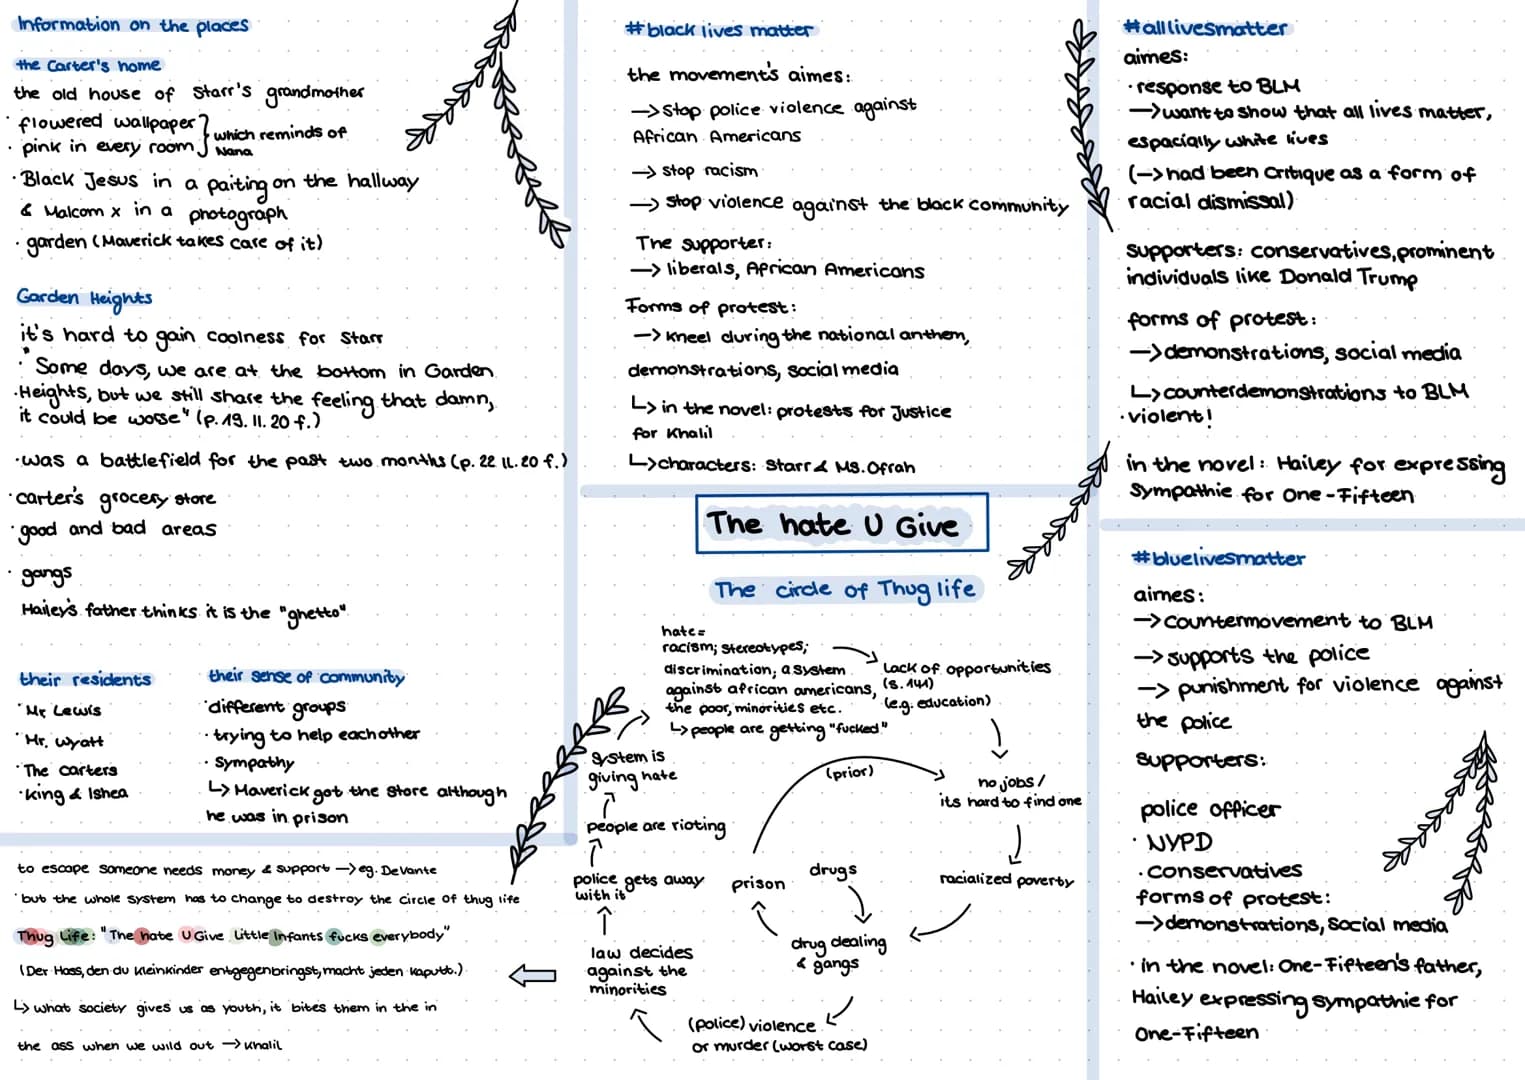 Information on the places
the Carter's home
the old house of Starr's grandmother
· flowered wallpaper } which reminds of
· pink in every room } Nana
· Black Jesus in a paiting on the hallway
& Malcom x in a photograph
· garden (Maverick takes care of it)
Garden Heights
it's hard to gain coolness for Starr
· "Some days, we are at the bottom in Garden
· Heights, but we still share the feeling that damn,
it could be worse" (p. 19. ll. 20 f.)
· was a battlefield for the past two months (p. 22 ll. 20 f.)
· carter's grocery store
· good and bad areas
· gangs
Hailey's father thinks it is the "ghetto"
their residents
· Mr Lewis
· Mr. Wyatt
· The carters
· king & Ishea
their sense of community
· different groups
· trying to help eachother
· Sympathy
↳ Maverick got the store although
he was in prison
to escape someone needs money & support → eg. DeVante
· but the whole system has to change to destroy the circle of thug life
Thug Life: "The hate U Give Little Infants fucks everybody"
(Der Hass, den du kleinkinder entgegenbringst, macht jeden kaputt.)
↳ what society gives us as youth, it bites them in the in
the ass when we wild out → Khalil
#black lives matter
the movement's aimes:
→ Stop police violence against
African Americans
→ stop racism
→ Stop violence against the black community
The supporter:
→ liberals, African Americans
Forms of protest:
→ kneel during the national anthem,
demonstrations, social media
↳ in the novel: protests for Justice
for Khalil
↳ characters: Starr & Ms. Ofrah
The hate U Give
The circle of Thug life
hate=
racism; stereotypes;
discrimination; a system
against african americans,
the poor, minorities etc.
↳ people are getting "fucked"
Lack of opportunities
(s. 141)
(e.g. education)
no jobs /
its hard to find one
racialized poverty
drugs
drug dealing
& gangs
prison
(prior)
(police) violence
or murder (worst case)
law decides
against the
minorities
police gets away
with it
people are rioting
system is
giving hate
#alllivesmatter
aimes:
· response to BLM
→ want to show that all lives matter,
espacially white lives
(→ had been critique as a form of
racial dismissal)
supporters: conservatives, prominent
individuals like Donald Trump
forms of protest:
→ demonstrations, social media
↳ counterdemonstrations to BLM
· violent!
in the novel: Hailey for expressing
Sympathie for One-Fifteen
#bluelivesmatter
aimes:
→ countermovement to BLM
→ supports the police
→ punishment for violence against
the police
supporters:
police officer
· NYPD
· conservatives
forms of protest:
→ demonstrations, Social media
· in the novel: One-Fifteen's father,
Hailey expressing sympathie for
One-Fifteen